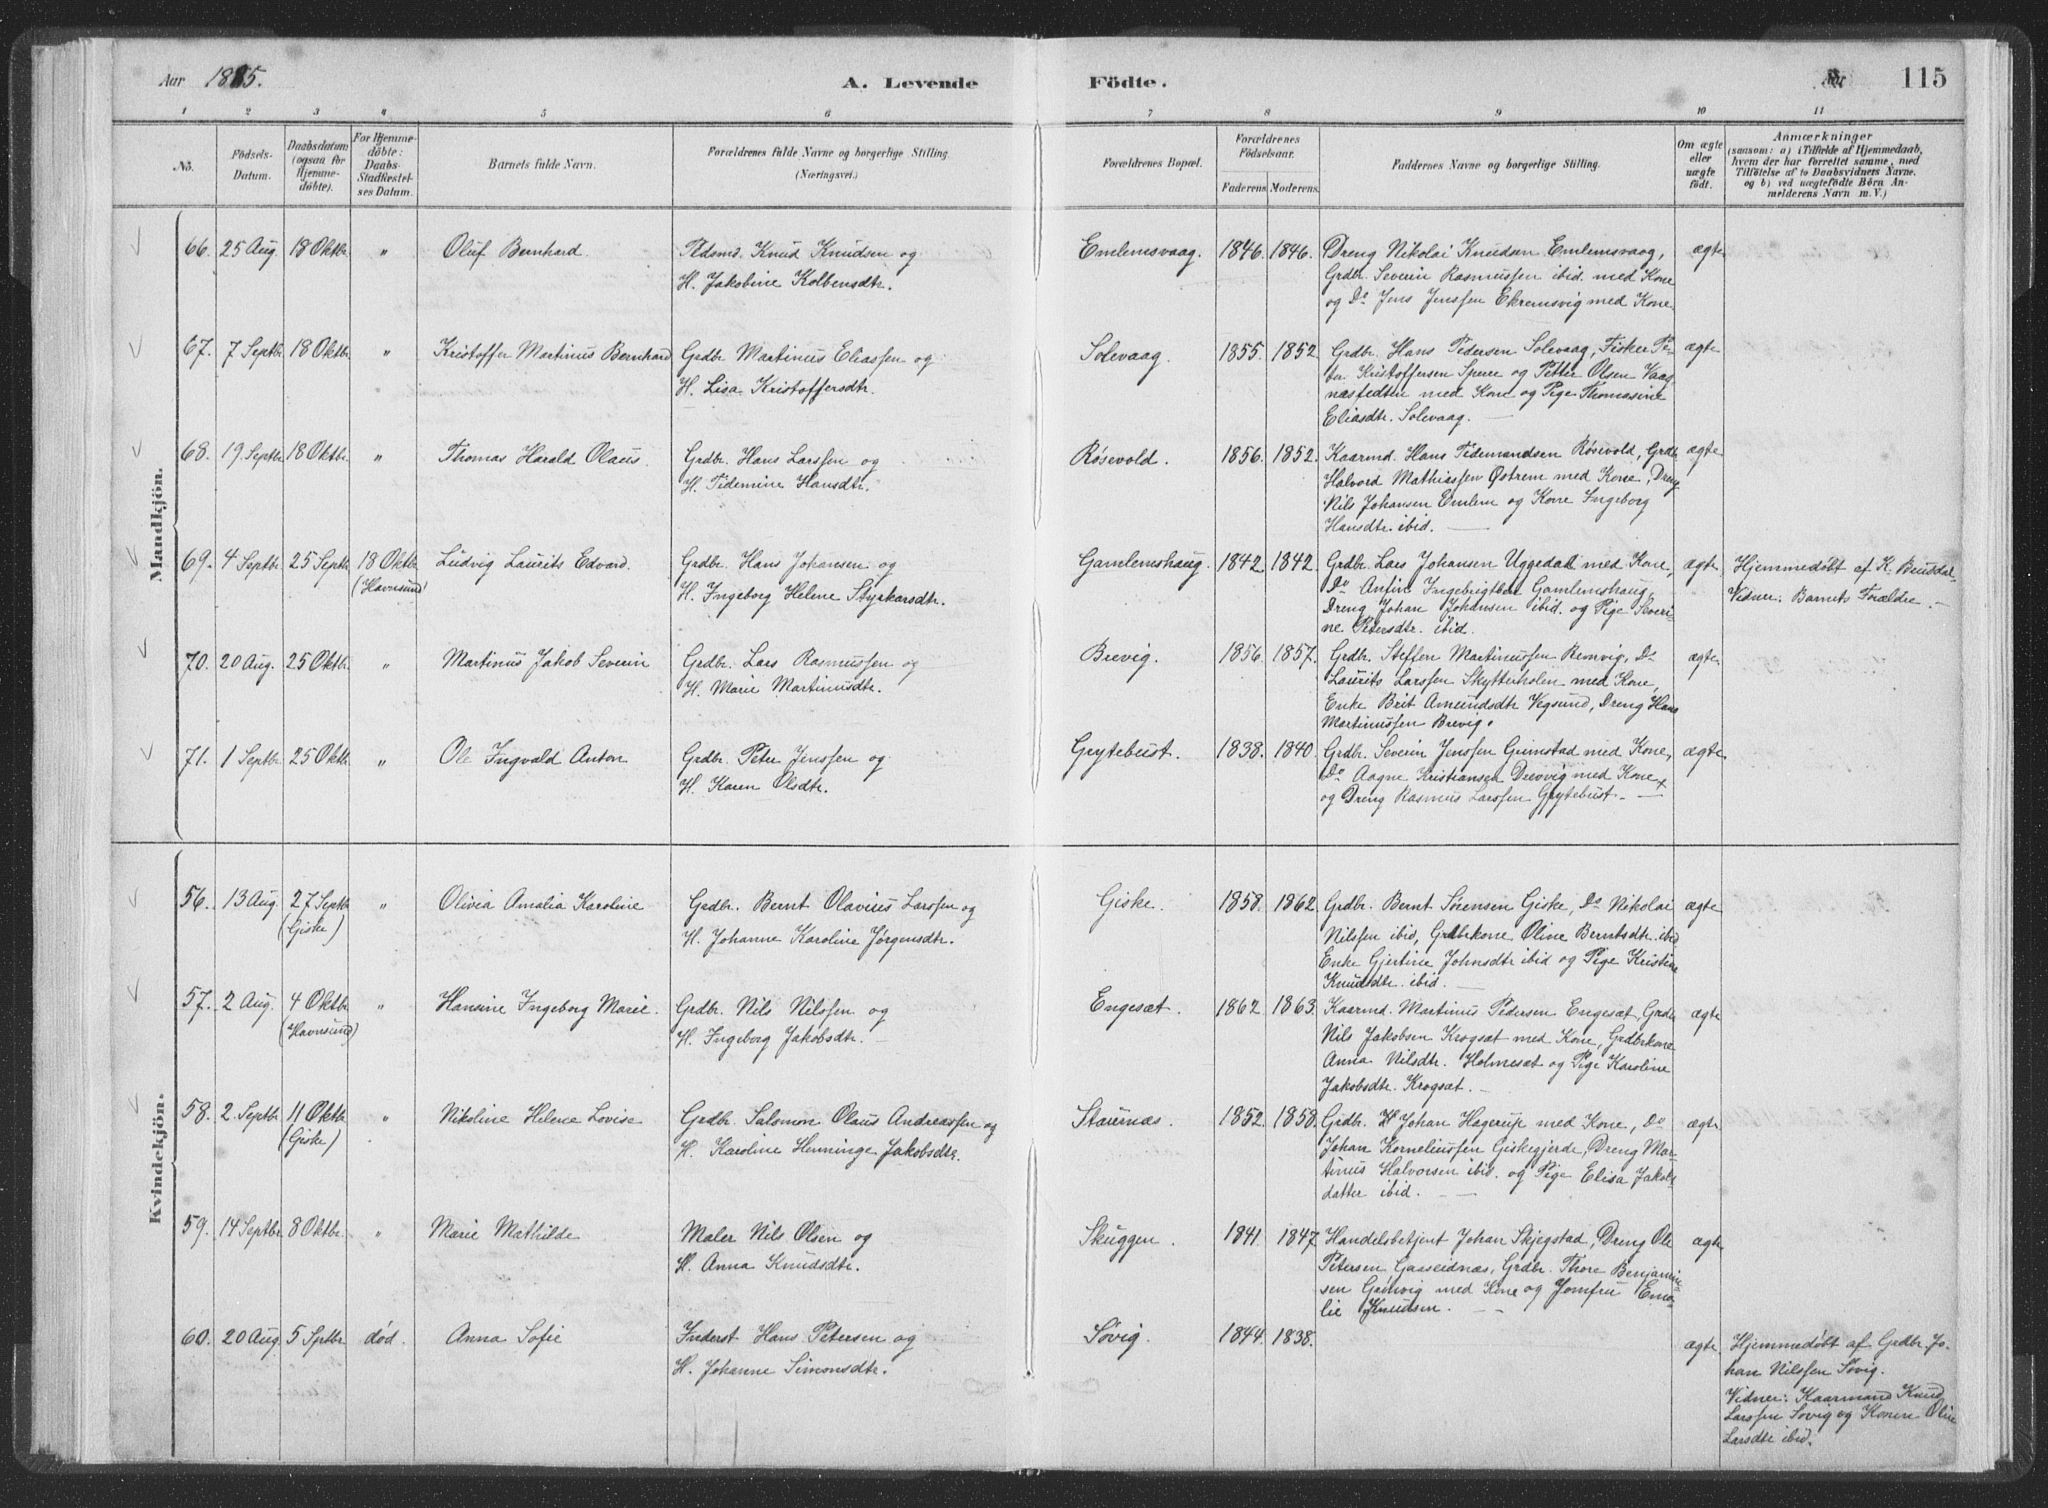 Aar 1885.
A. Levende
Födte.
115
1 2 3 4 5 6 7 8 9 10 11
No.
Födsels-
Datum.
Daabsdatum
(ogsaa for
Hjemme-
döbte).
For Hjemme-
döbte:
Daabs-
Stadfæstel-
ses Datum.
Barnets fulde Navn.
Forældrenes fulde Navne og borgerlige Stilling.
(Næringsvei.)
Forældrenes Bopæl.
Forældrenes
Födselsaar.
Faderens. Moderens.
Faddernes Navne og borgerlige Stilling.
Om ægte
eller
uægte
födt.
Anmærkninger
(saasom: a) i Tilfælde af Hjemmedaab,
hvem der har forrettet samme, med
Tilföielse af to Daabsvidners Navne,
og b) ved uægtefödte Börn An-
melderens Navn m. V.)
Mandkjön.
66. 25 Aug. 18 Oktbr. " Oluf Bernhard. Pldsmd. Knud Knudsen og Emlemsvaag. 1846. 1846. Dreng Nikolai Knudsen Emlemsvaag, ægte
H. Jakobine Kolbensdtr. Grdbr. Severin Rasmussen ibid. med Kone
og Do Jens Jenssen Ekremsvig med Kone.
67. 7 Septbr. 18 Oktbr. " Kristoffer Martinus Bernhard Grdbr. Martinus Eliassen og Solevaag. 1855. 1852. Grdbr. Hans Pedersen Solevaag, Fisker Pe- ægte
H. Lisa Kristoffersdtr. ter Kristoffersen Spere og Petter Olsen Vaag
næsfedten med Kone og Pige Thomasine
Eliasdtr. Solevaag.
68. 19 Septbr. 18 Oktbr. " Thomas Harald Olaus. Grdbr. Hans Larssen og Røsevold. 1856. 1852. Kaarmd. Hans Tidemandsen Røsevold, Grdbr. ægte
H. Tidemine Hansdtr. Halvord Mathiassen Østrem med Kone, Dreng
Nils Johansen Emlem og Kone Ingeborg
Hansdtr. ibid.
69. 4 Septbr. 25 Septbr. 18 Oktbr. Ludvig Laurits Edvard. Grdbr. Hans Johansen og Gamlemshaug. 1842. 1842. Grdbr. Lars Johansen Uggedal med Kone, ægte Hjemmedøbt af K. Beusdal.
(Havnsund) H. Ingeborg Helene Styrkarsdtr. Do Anfin Ingebrigtsen Gamlemshaug, Vidner: Barnets Forældre.
Dreng Johan Johansen ibid. og Pige Severi-
ne Petersdtr. ibid.
70. 20 Aug. 25 Oktbr. " Martinus Jakob Severin Grdbr. Lars Rasmussen og Brevig. 1856. 1857. Grdbr. Steffen Martinussen Remvig, Do ægte
H. Marie Martinusdtr. Laurits Larssen Skytterholen med Kone,
Enke Brit Amundsdtr Vegsund, Dreng Hans
Martinussen Brevig.
71. 1 Septbr. 25 Oktbr. " Ole Ingvald Anton Grdbr. Peter Jenssen og Grytebust. 1838. 1840. Grdbr. Severin Jenssen Grimstad med Kone, ægte
H. Karen Olsdtr. Do Aagne Kristiansen Drevvig med Kone
og Dreng Rasmus Larssen Grytebust.
Kvindekjön.
56. 13 Aug. 27 Septbr. " Olivia Amalia Karoline Grdbr. Bernt Olavius Larssen og Giske. 1858. 1862. Grdbr. Bernt Sørensen Giske, Do Nikolai ægte
(Giske) H. Johanne Karoline Jørgensdtr. Nilssen ibid, Grdbrkone Oline Berntsdtr. ibid
Enke Gjertine Johnsdtr ibid og Pige Kristine
Knudsdtr. ibid.
57. 2 Aug. 4 Oktbr. " Hansine Ingeborg Marie. Grdbr. Nils Nilssen og Engesæt. 1862. 1863. Kaarmd. Martinus Pedersen Engesæt, Grdbr. ægte
(Havnsund) H. Ingeborg Jakobsdtr. Nils Jakobsen Krogsæt med Kone, Grdbrkone
Anna Nilsdtr. Holmesæt og Pige Karoline
Jakobsdtr. Krogsæt.
58. 2. Septbr. 11 Oktbr. " Nikoline Helene Lovise Grdbr. Salomon Olaus Andreassen og Staurnæs. 1852. 1858. Grdbr. Johan Hagerup med Kone, Do ægte
(Giske) H. Karoline Henninge Jakobsdtr. Johan Korneliussen Giskegjerde, Dreng Mar-
tinus Halvorsen ibid. og Pige Elisa Jakobs-
datter ibid.
59. 14 Septbr. 8 Oktbr. " Marie Mathilde Maler Nils Olsen og Skuggen. 1841. 1847. Handelsbetjent Johan Skjegstad, Dreng Ole ægte
H. Anna Knudsdtr. Petersen Gaaseidnæs, Grdbr. Thore Benjamin-
sen med Kone og Jomfru Ema-
lie Knudsen.
60. 20 Aug. 5 Sptbr. død. Anna Sofie Inderst Hans Petersen og Søvig. 1844. 1838. ægte Hjemmedøbt af Grdbr. Jo-
H. Johanne Simonsdtr. han Nilssen Søvig.
Vidner: Kaarmand Knud
Larssen Søvig og Konen Oline
Larsdtr ibid.